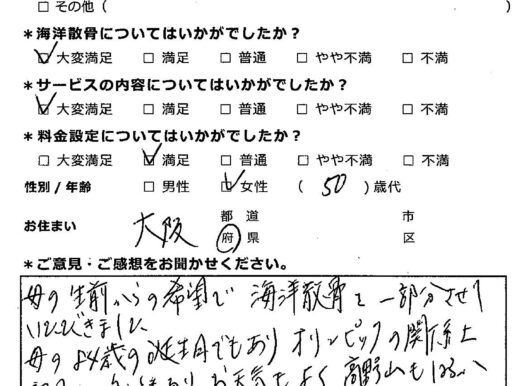 □ その他（　　　）
＊海洋散骨についてはいかがでしたか？
☑ 大変満足 □ 満足 □ 普通 □ やや不満 □ 不満
＊サービスの内容についてはいかがでしたか？
☑ 大変満足 □ 満足 □ 普通 □ やや不満 □ 不満
＊料金設定についてはいかがでしたか？
□ 大変満足 ☑ 満足 □ 普通 □ やや不満 □ 不満
性別 / 年齢 □ 男性 ☑ 女性 （ 50 ）歳代
お住まい 大阪 都 道 府 県 市 区
＊ご意見・ご感想をお聞かせください。
母の生前からの希望で 海洋散骨を一部分させて
いただきました
母の84歳の誕生日でもあり オリンピックの関係上
お天気もよく 高野山も